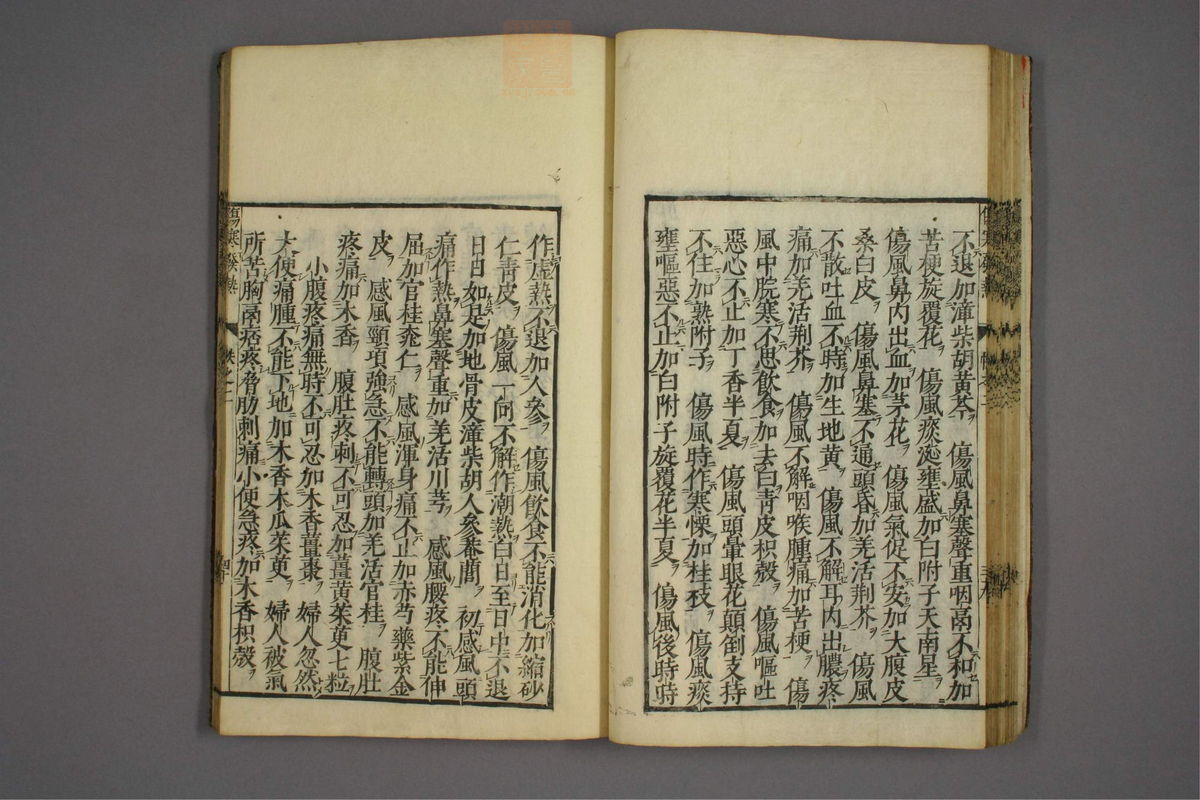 不退加瀋柴胡黃芩　傷風鼻塞聲重咽鬲不和加
苦梗旋覆花　傷風痰涎壅盛加白附子天南星
傷風鼻內出血加茅花　傷風氣促不安加大腹皮
桑白皮　傷風鼻塞不通頭昏加羌活荆芥　傷風
不散吐血不時加生地黃　傷風不解耳內出膿疼
痛加羌活荆芥　傷風不解咽喉腫痛加苦梗　傷
風中脘寒不思飲食加去白青皮枳殼　傷風嘔吐
惡心不止加丁香半夏　傷風頭暈眼花顛倒支持
不住加熟附子　傷風時作寒慄加桂枝　傷風痰
壅嘔惡不止加白附子旋覆花半夏　傷風後時時
作虛熱不退加人參　傷風飲食不能消化加縮砂
仁青皮　傷風一向不解作潮熱白日至日中不退
日日如是加地骨皮瀋柴胡人參菴䕡　初感風頭
痛作熱鼻塞聲重加羌活川芎　感風腰疼不能伸
屈加官桂桃仁　感風渾身痛不止加赤芍藥紫金
皮　感風頸項強急不能轉頭加羌活官桂　腹肚
疼痛加木香　腹肚疼刺不可忍加薑黃茱萸七粒
小腹疼痛無時不可忍加木香薑棗　婦人忽然
大便痛腫不能下地加木香木瓜茱萸　婦人被氣
所苦胸鬲痞疼脅肋刺痛小便急疼加木香枳殼